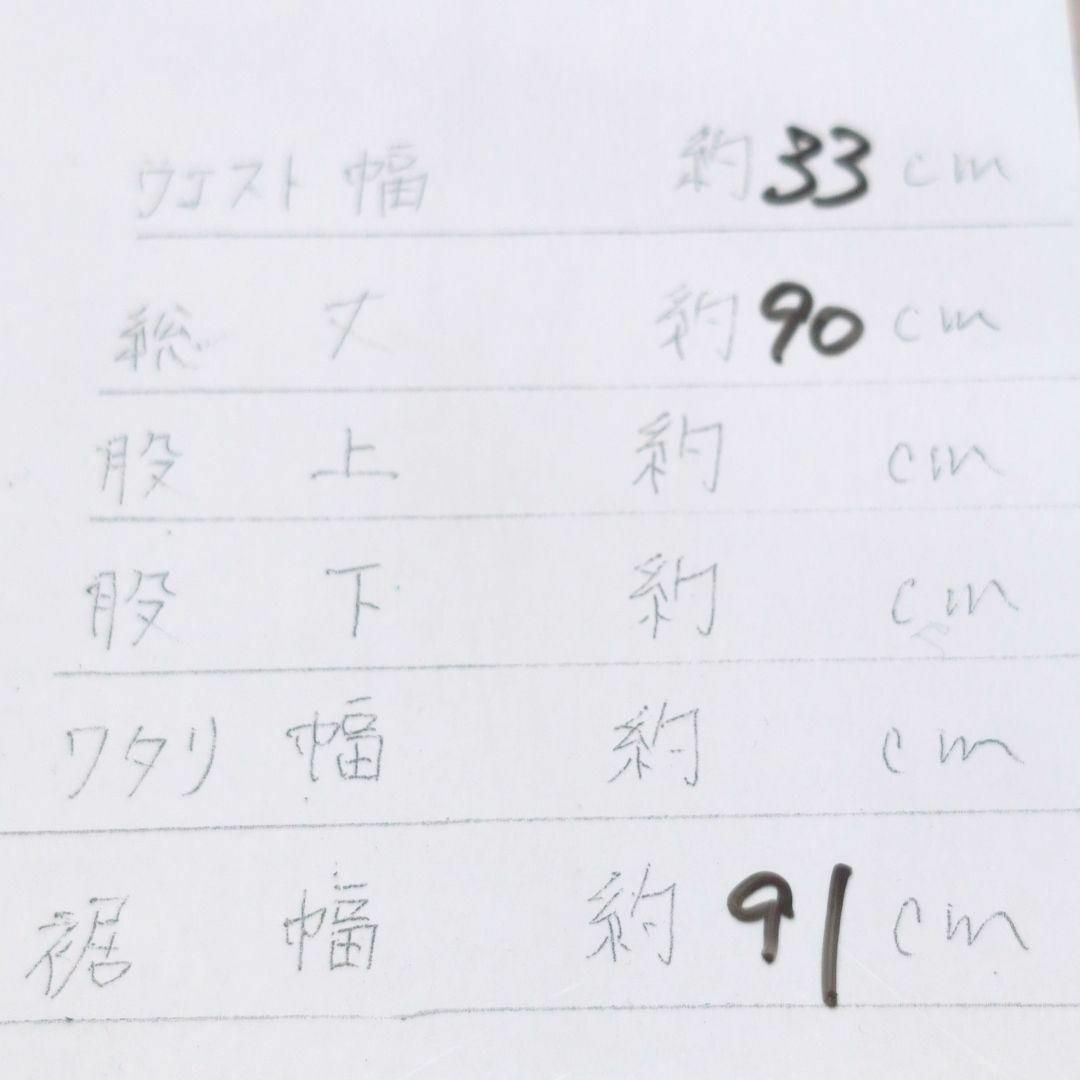 ウエスト幅 約33cm
総丈 約90cm
股上 約 cm
股下 約 cm
ワタリ幅 約 cm
裾幅 約91cm